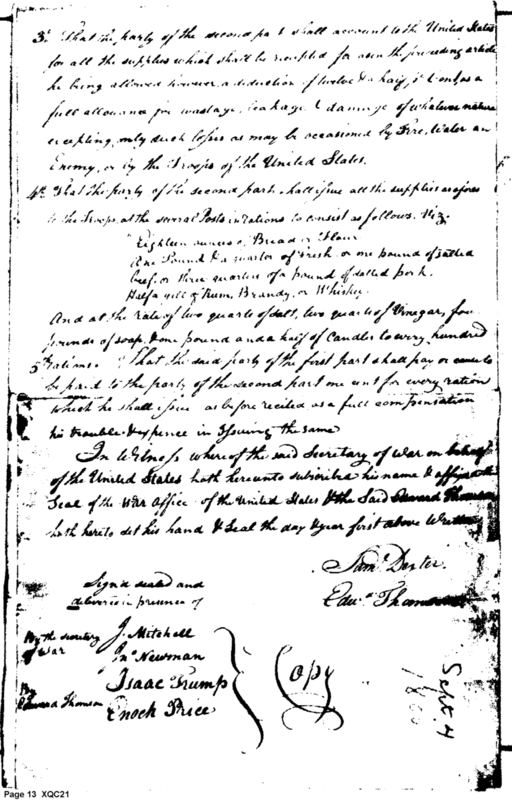 3d. That the party of the second part shall account to the United States
for all the supplies which shall be receipted for as in the preceeding article
he being allowed however a deduction of twelve & a half, as a
full allowance for wastage, leakage & damage of whatever nature
excepting only such losses as may be occasioned by Fire, Water an
Enemy, or by the Troops of the United States.
4th. That the party of the second part shall issue all the supplies aforesd
to the Troops at the several Posts in rations to consist as follows. Viz.
Eighteen ounces of Bread or Flour
One Pound & a quarter of Fresh or one pound of salted
beef, or three quarters of a pound of salted pork.
Half a gill of Rum, Brandy, or Whiskey.
And at the rate of two quarts of salt, two quarts of Vinegar, four
pounds of soap, & one pound and a half of Candles to every hundred
rations.
5th That the said party of the first part shall pay or cause to
be paid to the party of the second part one cent for every ration
which he shall issue as before recited as a full compensation
his trouble & expence in issuing the same
In Witness whereof the said Secretary of War on behalf
of the United States hath hereunto subscribed his name & affixed the
Seal of the War Office of the United States & the said Edward Thomson
hath hereto set his hand & Seal the day & year first above Written
Saml. Dexter.
Edwd Thomson
Signd sealed and
delivered in presence of
By the secretary
of War
J. Mitchell
Jno Newman
By
Edward Thomson
Isaac Trump
Enoch Price
Copy
Sept. 4
1800
Page 13 XQC21